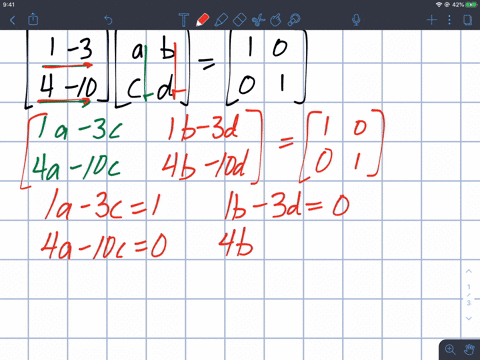 9:41
42%
[1 -3] [a b] = [1 0]
[4 -10] [c d] = [0 1]
[1a-3c 1b-3d] = [1 0]
[4a-10c 4b-10d] = [0 1]
1a-3c=1 1b-3d=0
4a-10c=0 4b
1
/
3